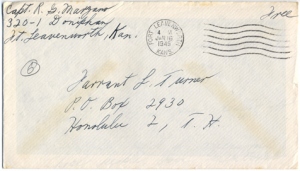 Capt. R. G. Marzano
320-1 Doniphan
Ft. Leavenworth, Kan.
Free
FORT LEAVENWORTH
KANS.
6
Farrant L. Turner
P.O. Box 2930
Honolulu 2, T.H.